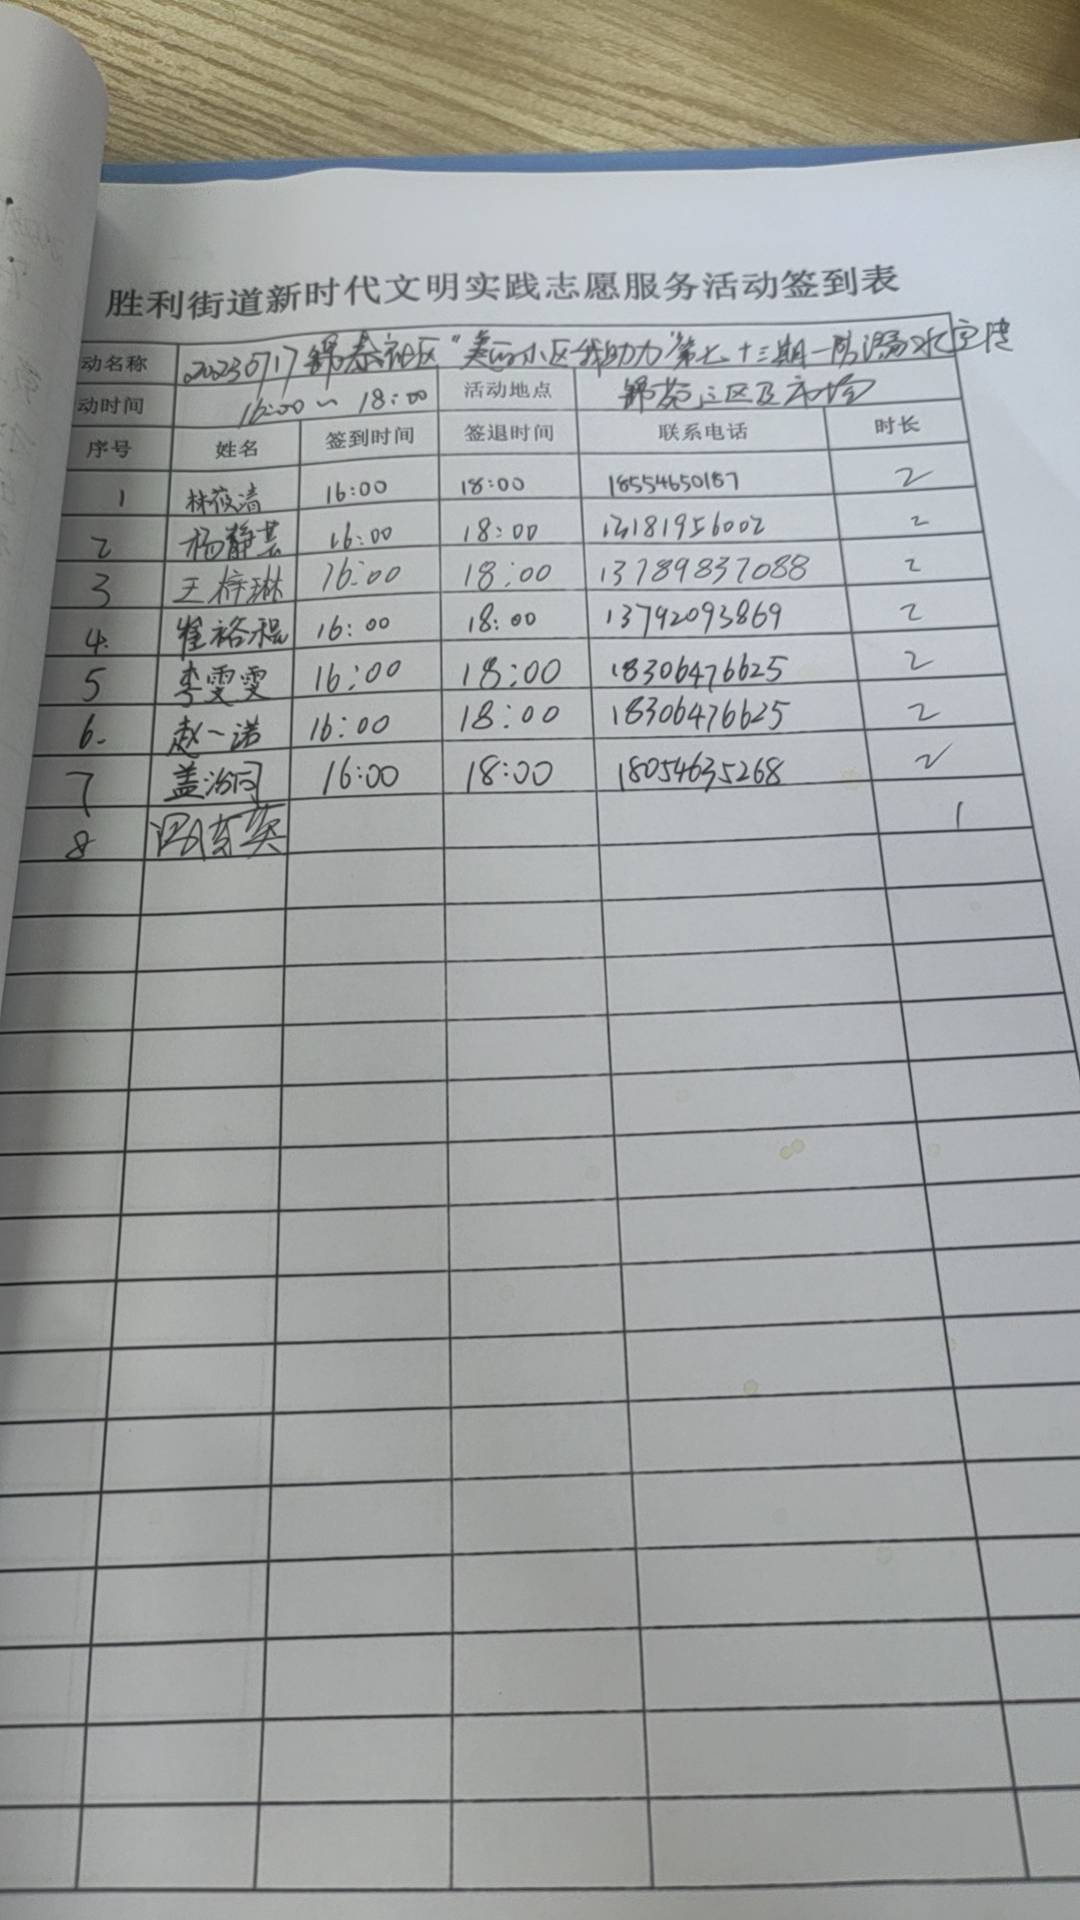 胜利街道新时代文明实践志愿服务活动签到表
动名称 20230717锦泰社区"美丽小区我助力"第七十三期一防溺水宣传
动时间 16:00~18:00 活动地点 锦苑三区及
序号 姓名 签到时间 签退时间 联系电话 时长
1 林筱清 16:00 18:00 18554650187 2
2 杨静芸 16:00 18:00 13181956002 2
3 王梓琳 16:00 18:00 13789837088 2
4. 崔裕程 16:00 18:00 13792093869 2
5 李雯雯 16:00 18:00 18306476625 2
6. 赵一诺 16:00 18:00 18306476625 2
7 盖治同 16:00 18:00 18054635268 2
8 1